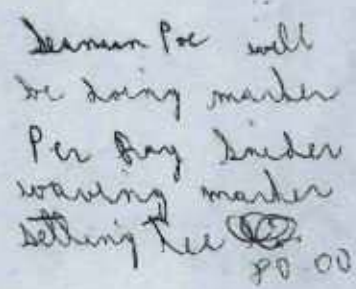 Poe will
be doing marker
Per Ray Snider
waving marker
setting fee
80.00